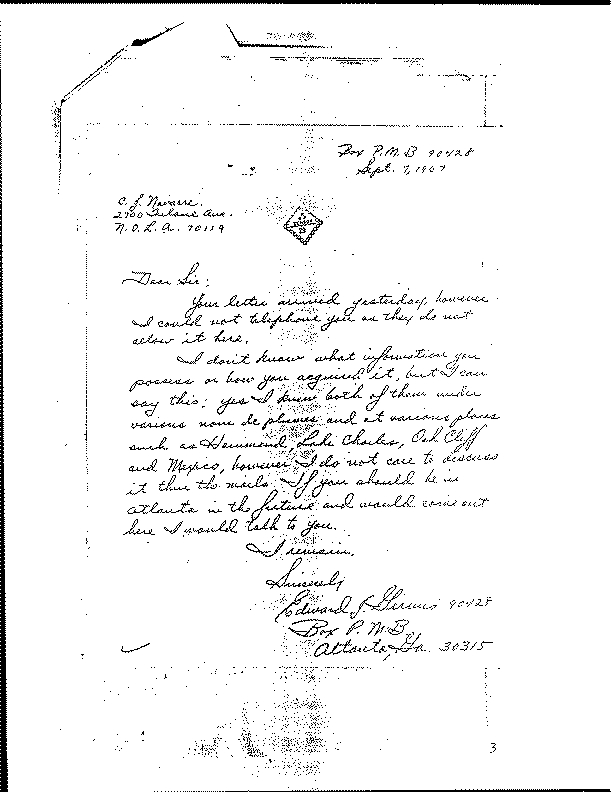 Box P.M.B 90428
Sept. 7, 1967
C. J. Navarre.
2700 Tulane Ave.
N.O.L.A. 70119
Dear Sir:
Your letter arrived yesterday, however
I could not telephone you as they do not
allow it here.
I don't know what information you
possess or how you acquired it, but I can
say this: yes I knew both of them under
various nom de plumes and at various places
such as Hammond, Lake Charles, Oak Cliff
and Mexico, however I do not care to discuss
it thru the mails. If you should be in
atlanta in the future and would come out
here I would talk to you.
I remain,
Sincerely
Edward J. 90428
Box P.M.B
Atlanta, Ga. 30315
3